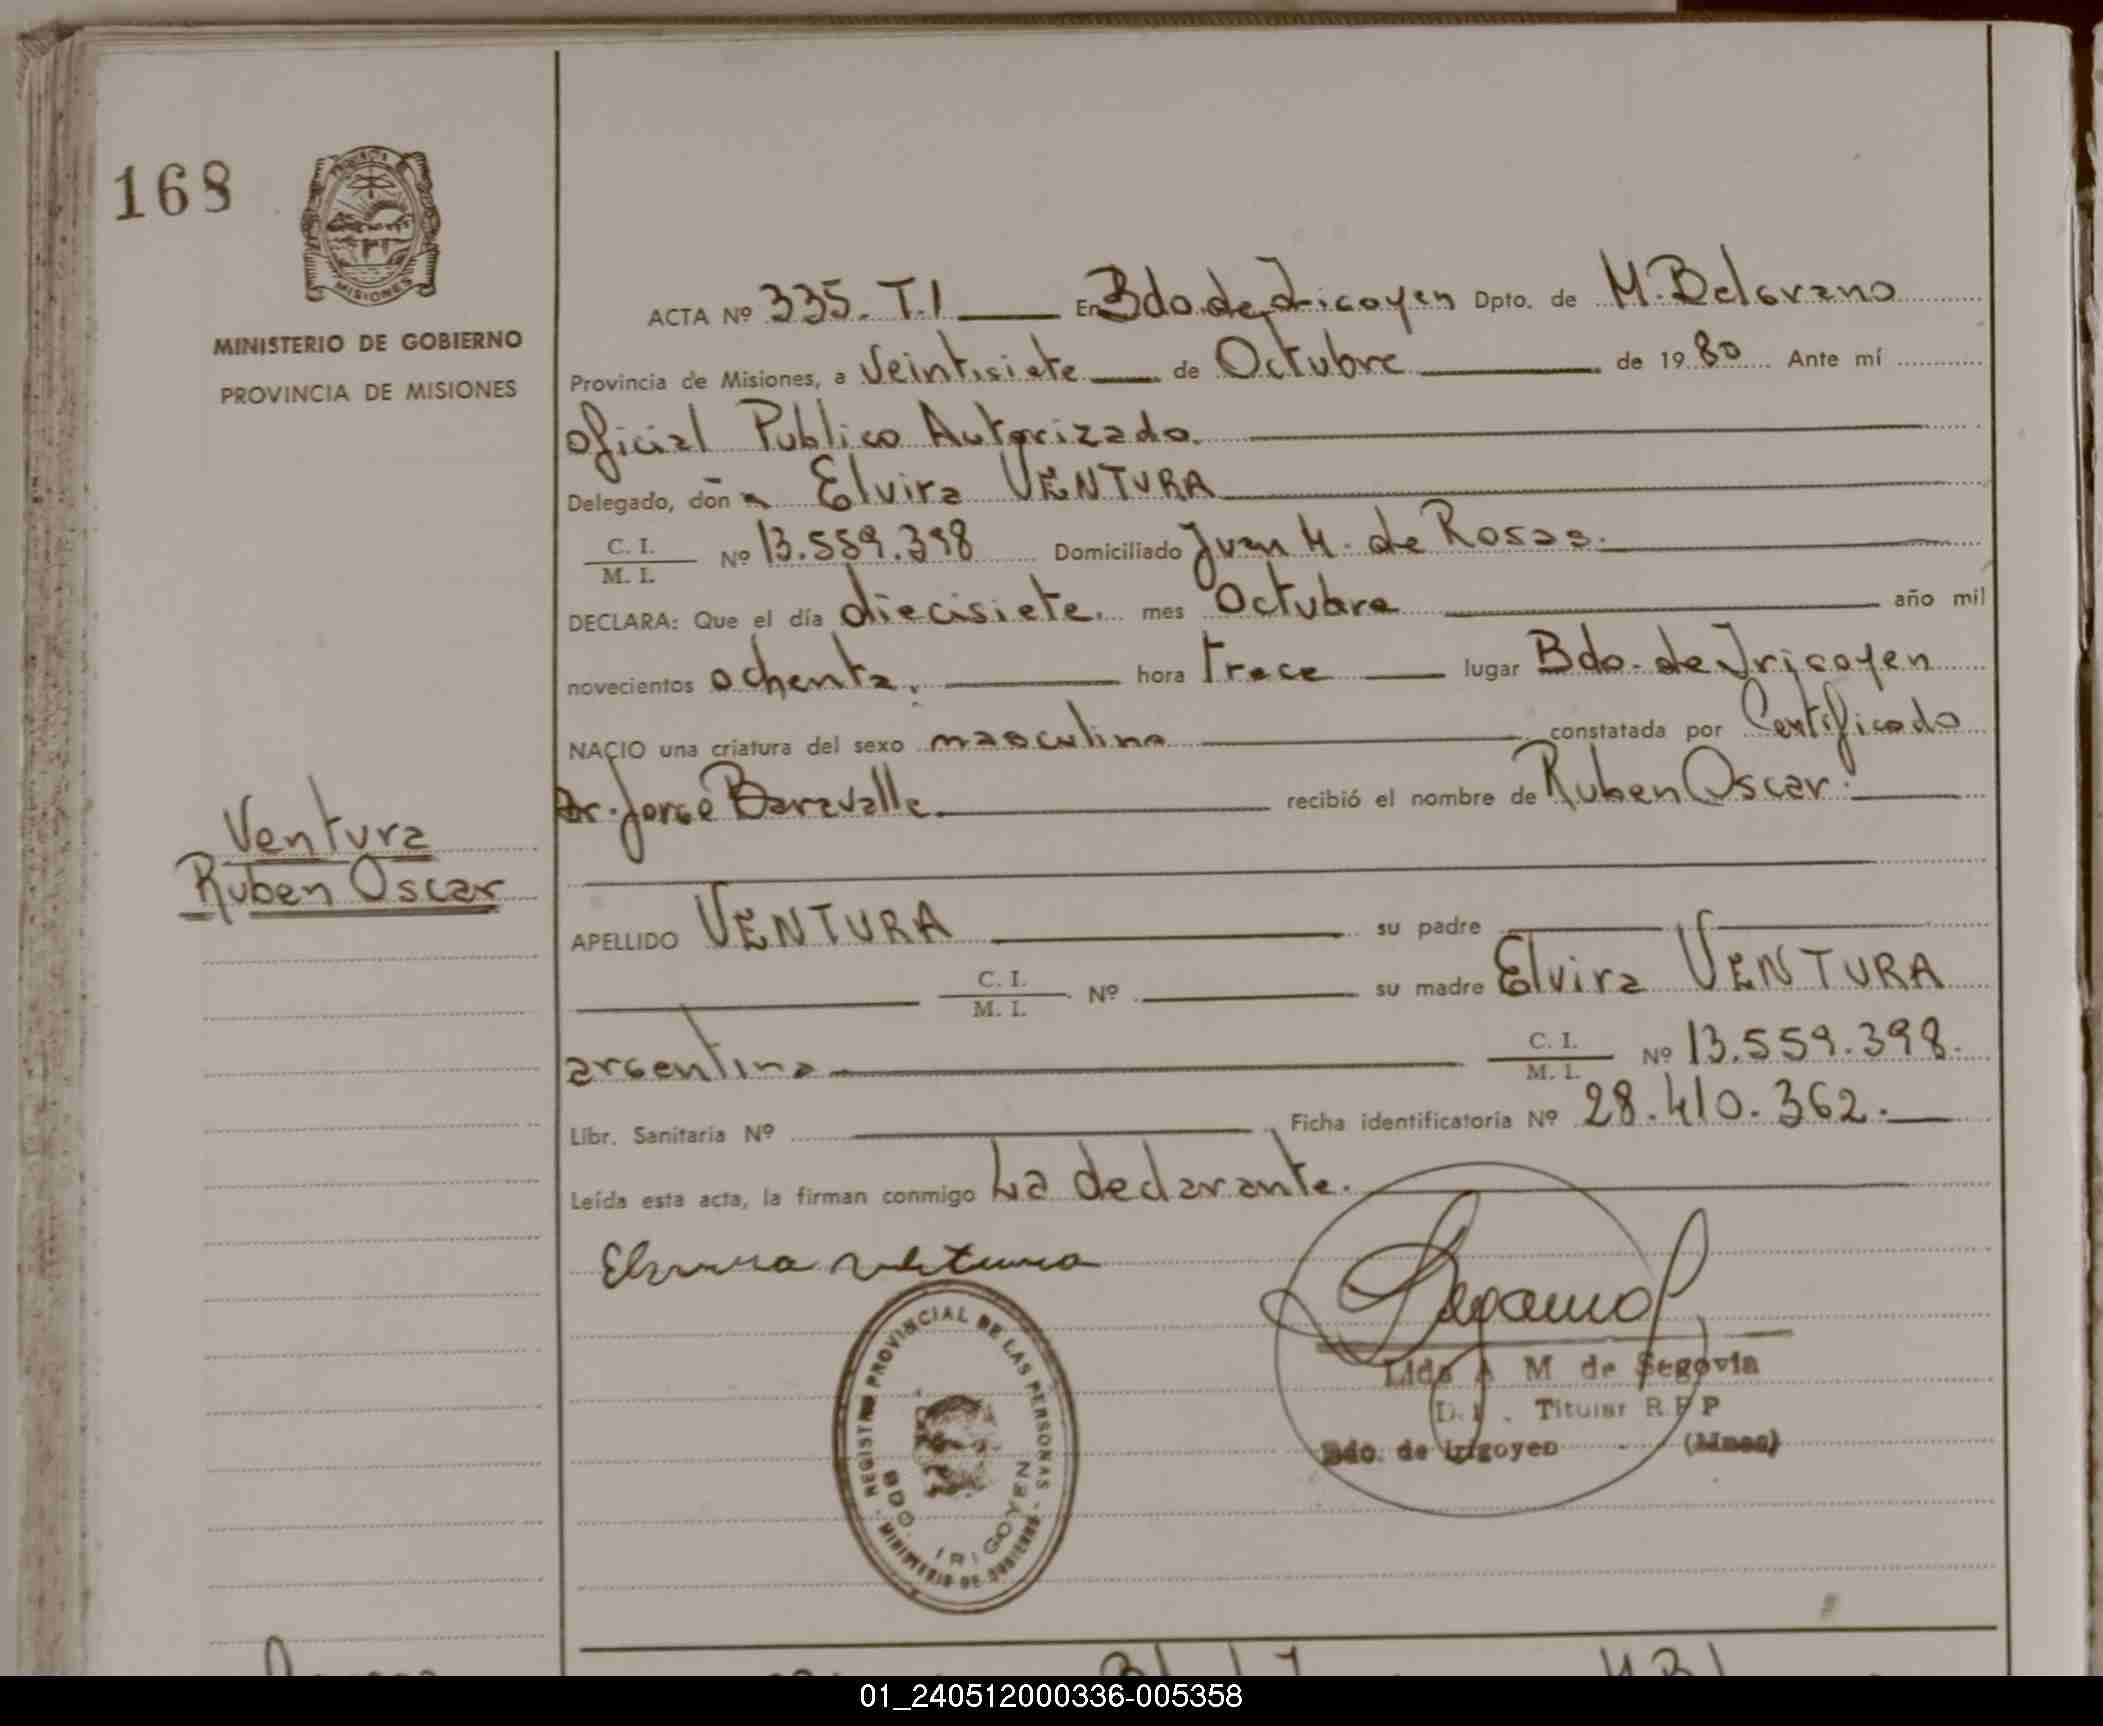 168
MISIONES
MINISTERIO DE GOBIERNO
PROVINCIA DE MISIONES
ACTA Nº 335. T.I En Bdo. de Irigoyen Dpto. de M. Belgrano
Provincia de Misiones, a Veintisiete de Octubre de 19 80 Ante mí
Oficial Publico Autorizado.
Delegado, doña Elvira VENTURA
C. I. / M. I. Nº 13.559.398 Domiciliado Juan M. de Rosas.
DECLARA: Que el día diecisiete. mes Octubre año mil
novecientos ochenta. hora trece lugar Bdo. de Irigoyen
NACIO una criatura del sexo masculino constatada por Certificado
Dr. Jorge Baravalle. recibió el nombre de Ruben Oscar.
Ventura
Ruben Oscar
APELLIDO VENTURA su padre
C. I. / M. I. Nº su madre Elvira VENTURA
argentina C. I. / M. I. Nº 13.559.398.
Libr. Sanitaria Nº Ficha identificatoria Nº 28.410.362.
Leída esta acta, la firman conmigo La declarante.
Elvira Ventura
REGISTRO PROVINCIAL DE LAS PERSONAS
BDO. IRIGOYEN
MINISTERIO DE GOBIERNO
Lida A M de Segovia
Titular R.P.P
Bdo. de Irigoyen (Mnes)
01_240512000336-005358